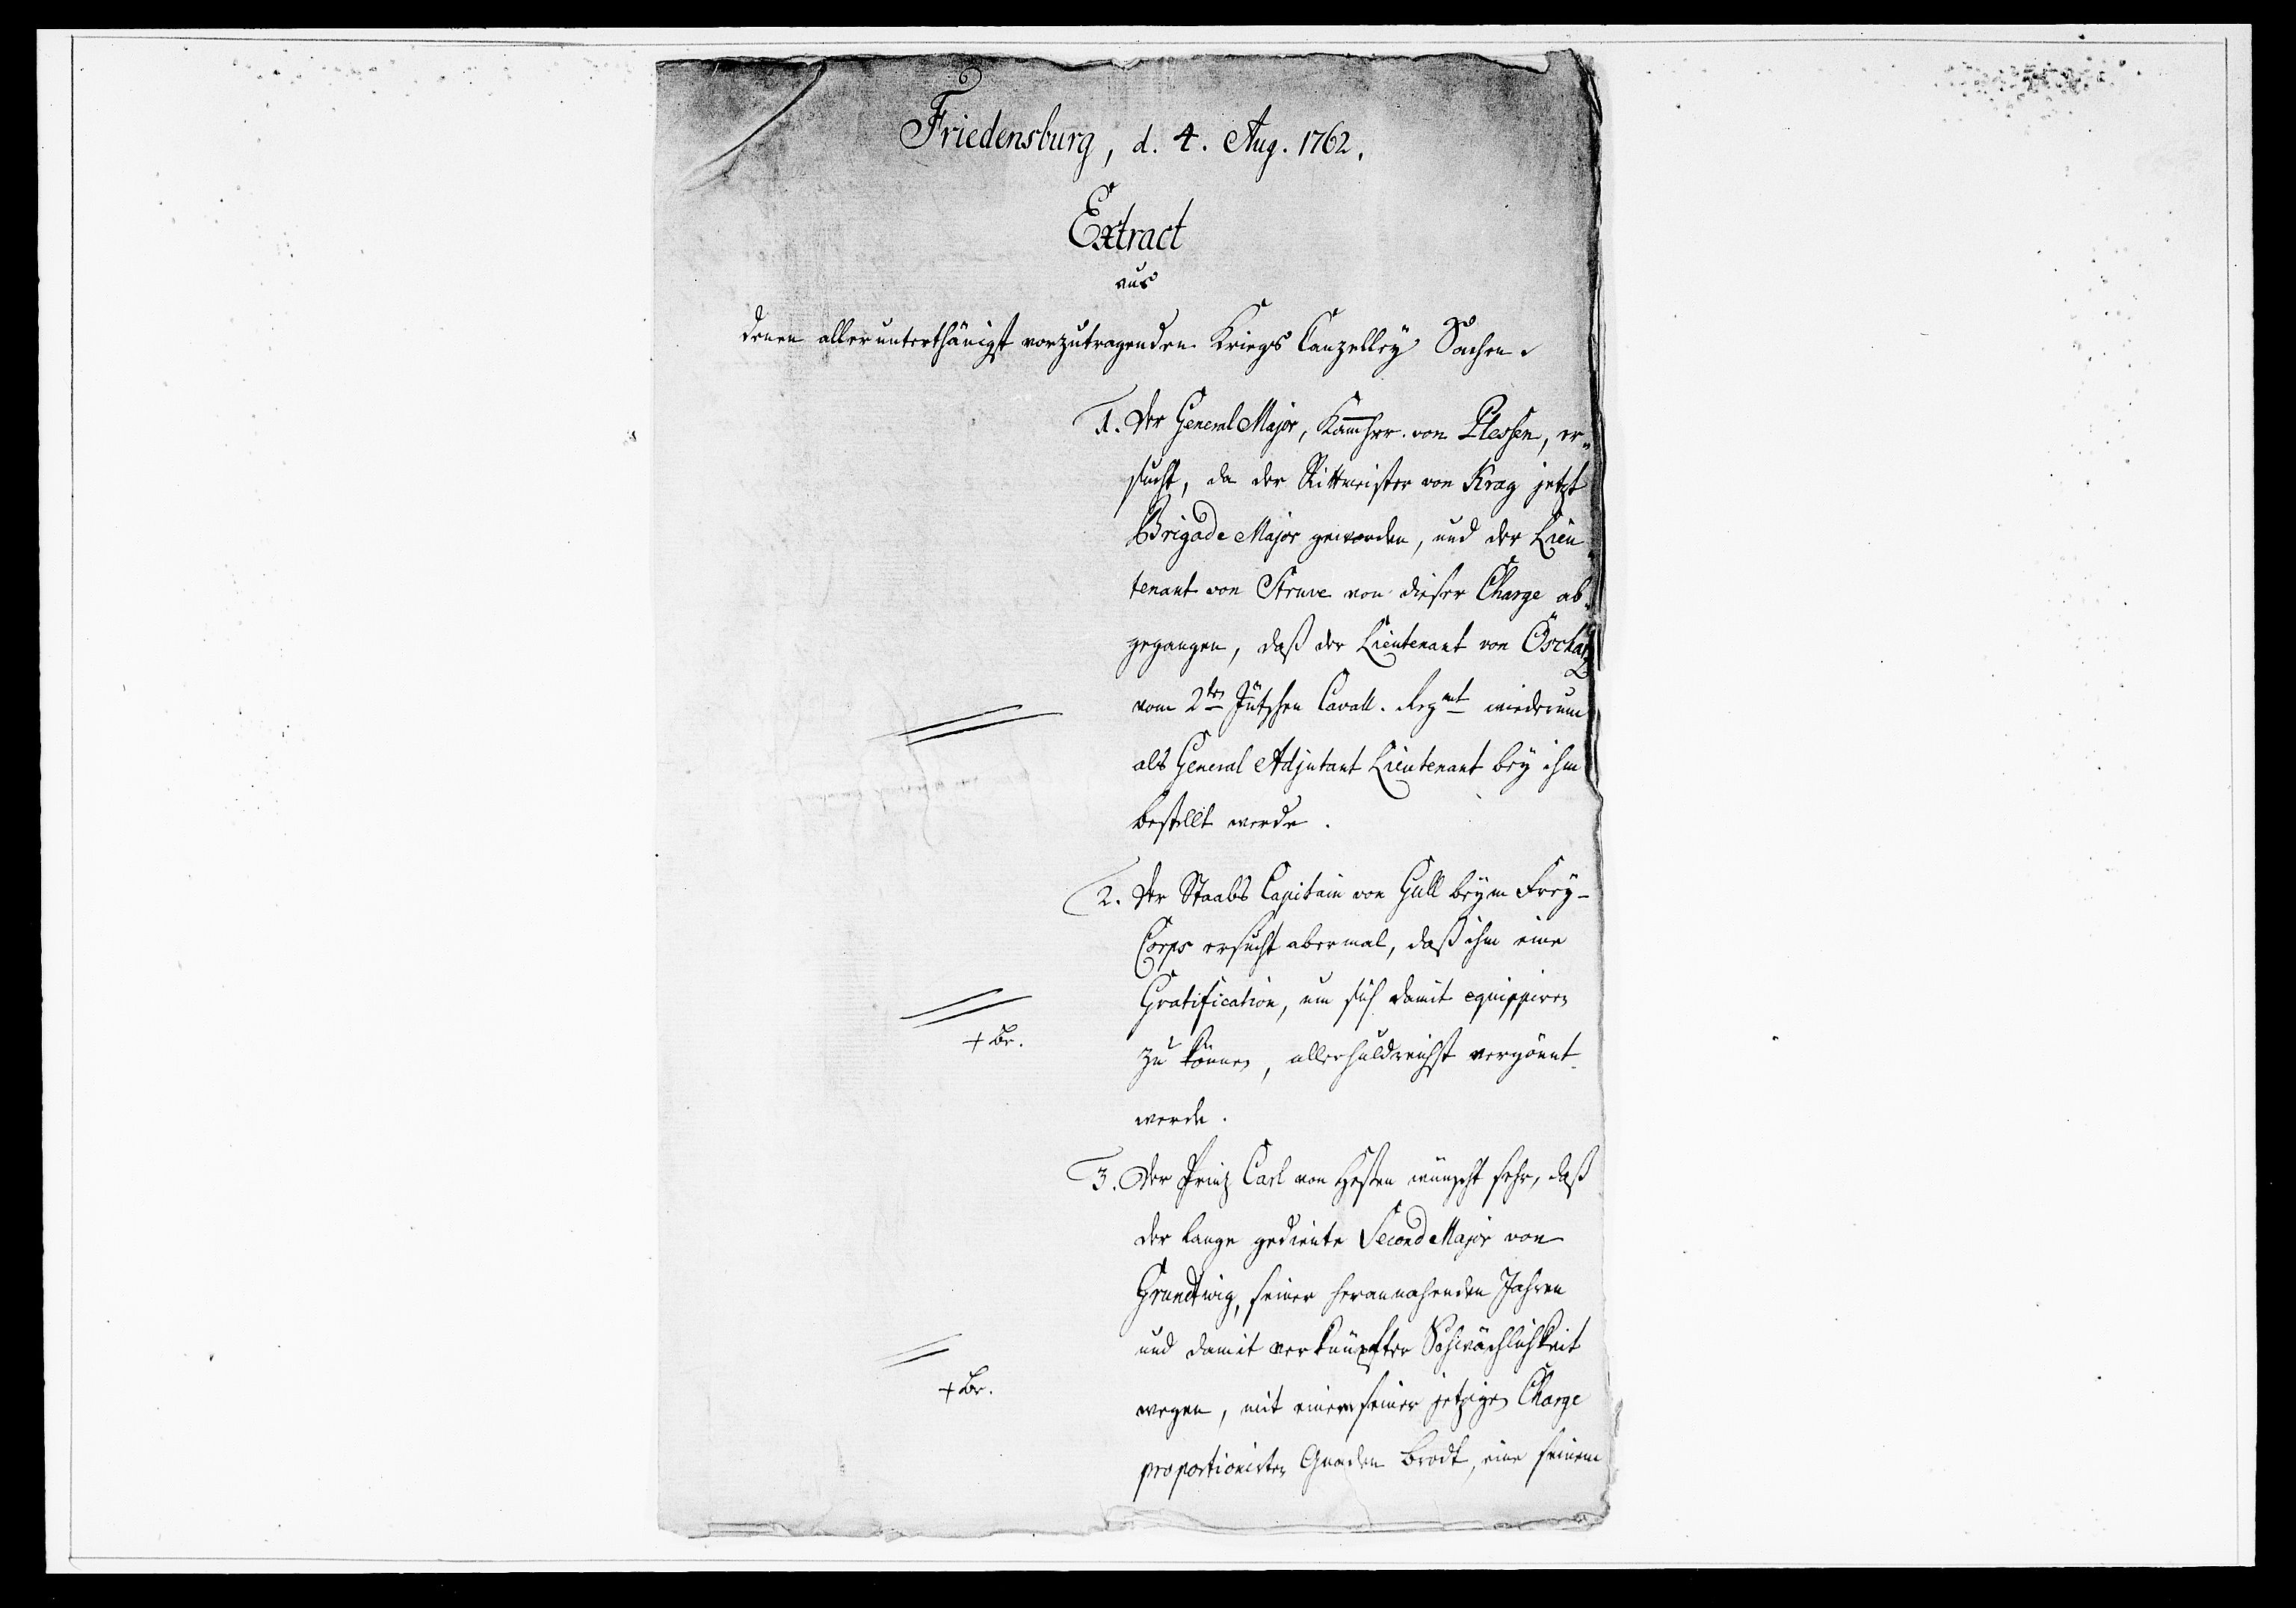 Friedensburg, d. 4. Aug. 1762.
Extract
aus
denen allerunterthänigst vorzutragenden Kriegs Canzelley Sachen.
1. Der General Major, Kammherr von Plessen, er-
sucht, da der Rittmeister von Krag jetzt
Brigade Major geworden, und der Lieu-
tenant von Struve von dieser Charge ab-
gegangen, daß der Lieutenant von Öschatz
vom 2ten Jütschen Cavall. Regmt wiederum
als General Adjutant Lieutenant bey ihm
bestellt werde.
2. Der Staabs Capitain von Gull beym Frey-
Corps ersucht abermal, daß ihm eine
Gratification, um sich damit equippiren
+ Br.
zu können, allerhuldreichst vergönnt
werde.
3. Der Prinz Carl von Hessen wünscht sehr, daß
der lange gediente Second Major von
Grundtwig, seiner herannahenden Jahren
und damit verknüpfter Schwächlichkeit
+ Br.
wegen, mit einem seiner jetzigen Charge
proportionirten Gnaden Brodt, eine seinem